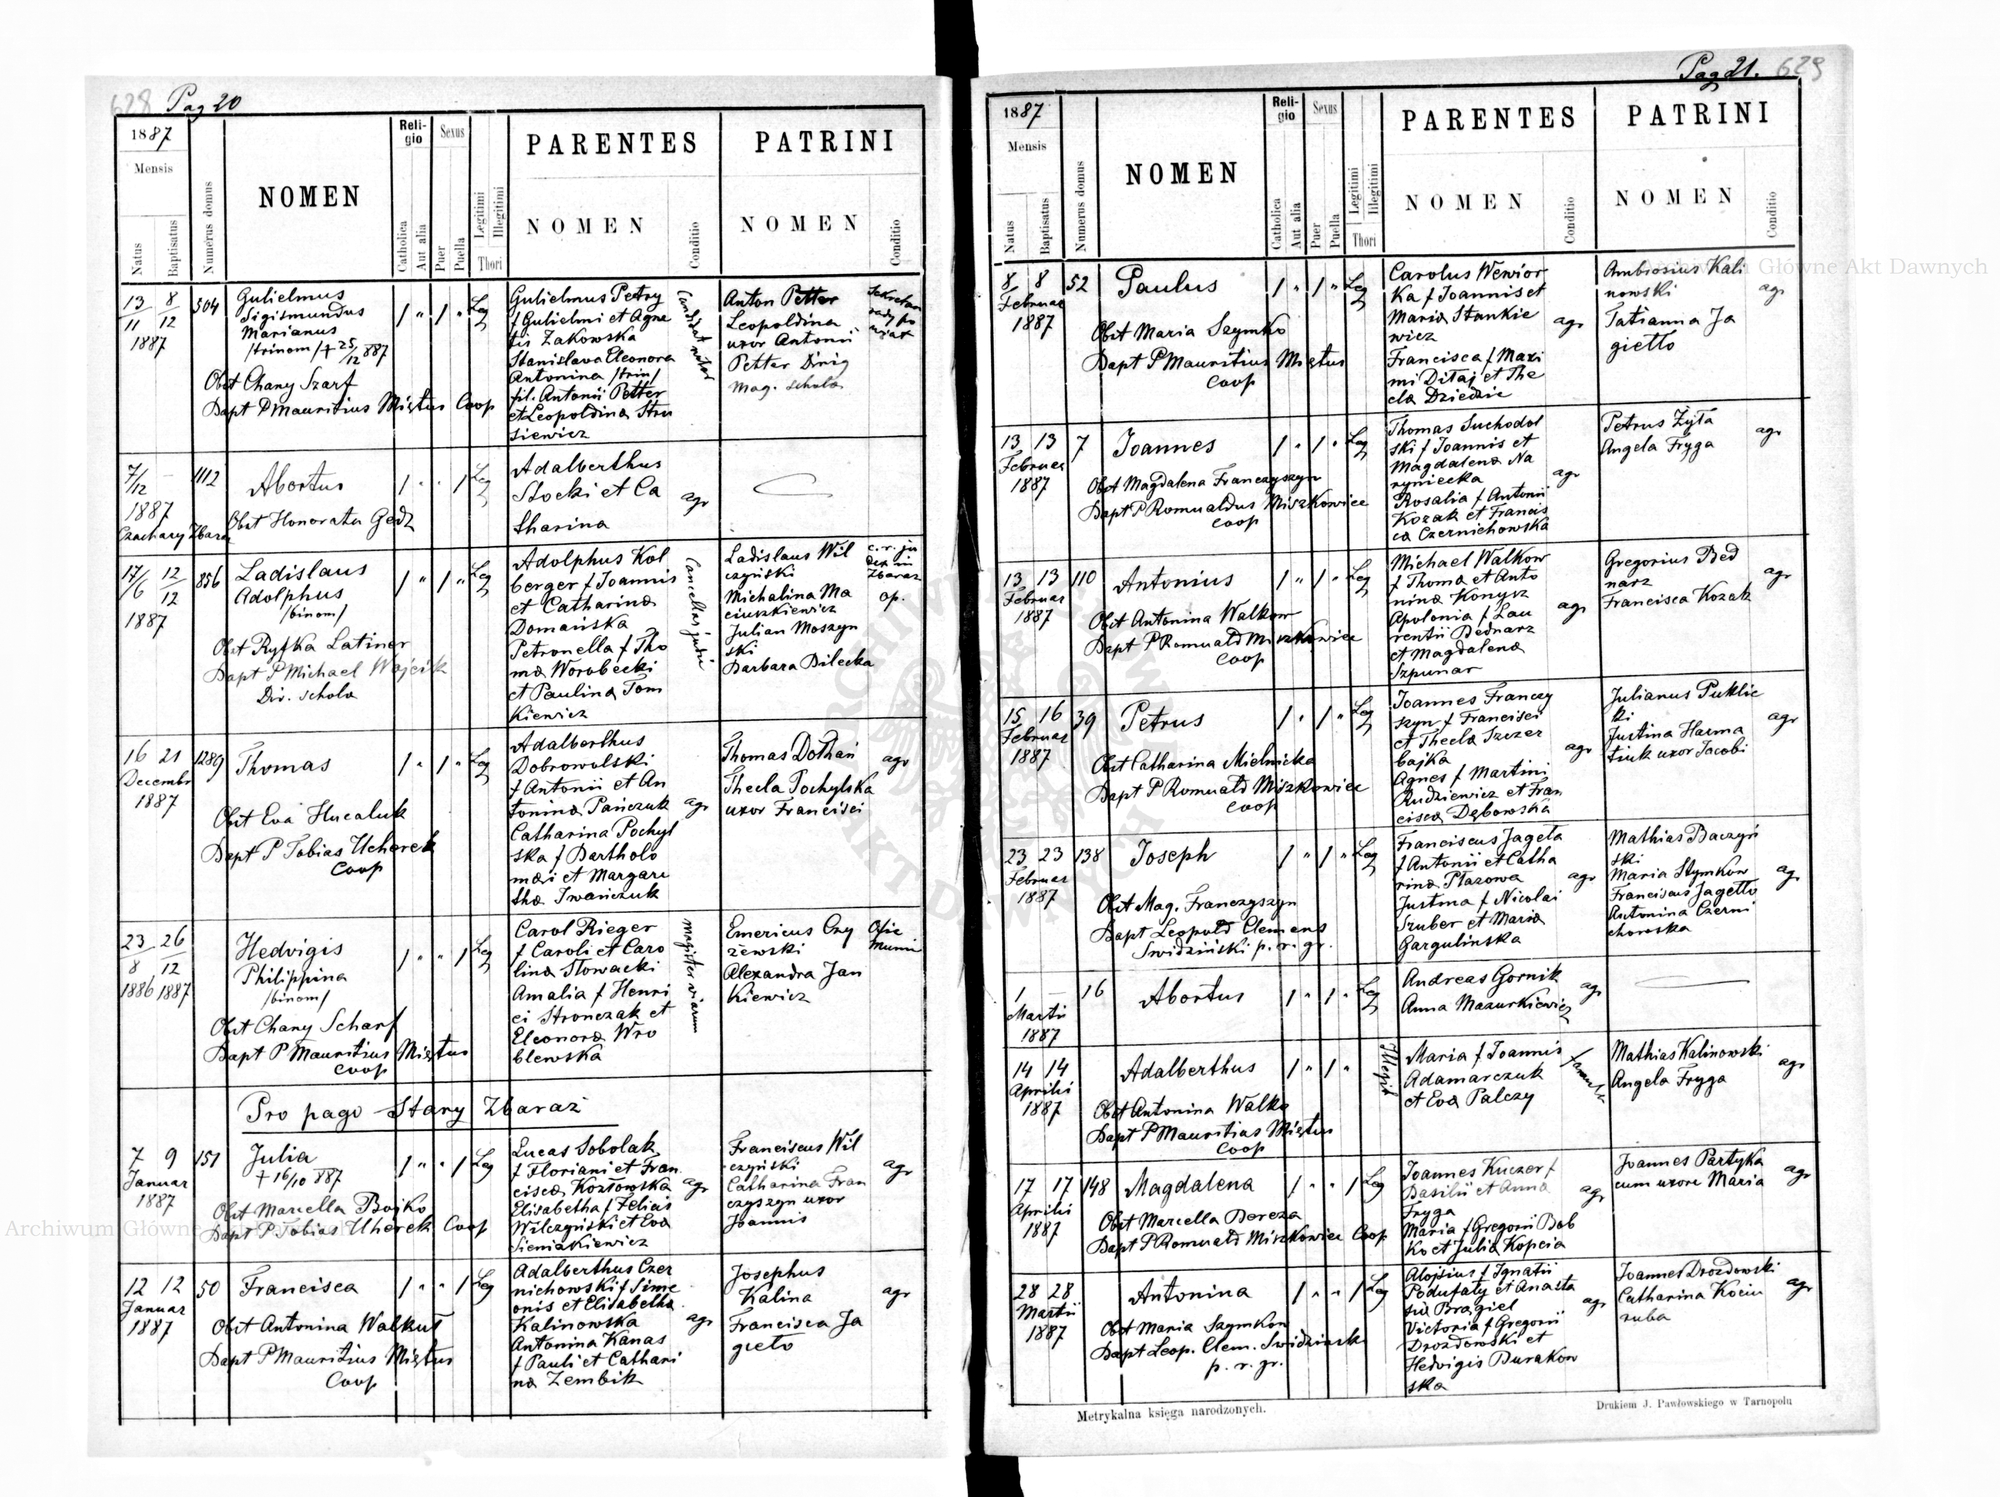 628 Pag 20
1887
Mensis
Natus
Baptisatus
Numerus domus
NOMEN
Reli-
gio
Catholica
Aut alia
Sexus
Puer
Puella
Legitimi
Illegitimi
Thori
PARENTES
NOMEN
Conditio
PATRINI
NOMEN
Conditio
13/11 8/12
1887
504
Gulielmus
Sigismundus
Marianus
/trinom/ + 25/12 887
Obst Chany Szarf
Bapt P Mauritius Miętus Coop
1 " 1 " Leg
Gulielmus Petry
f Gulielmi et Agne
tis Zakowska
Stanislava Eleonora
Antonina /trin/
fil. Antonii Petter
et Leopoldina Stru
siewicz
Candidat notar
Anton Petter
Leopoldina
uxor Antonii
Petter Dirig
Mag. schola
Sekretarz
rady po
wiat
7/12 —
1887
Czachary Zbaraz
1112
Abortus
Obst Honorata Gedz
1 " " 1 Leg
Adalberthus
Stocki et Ca
tharina
agr
17/6 12/12
1887
856
Ladislaus
Adolphus
/binom/
Obst Ryfka Latiner
Bapt P Michael Wojcik
Dir. schola
1 " 1 " Leg
Adolphus Kol
berger f Joannis
et Catharina
Domańska
Petronella f Tho
ma Worobecki
et Paulina Tom
kiewicz
Ladislaus Wil
czyński
Michalina Ma
ciuszkiewicz
Julian Moszyn
ski
Barbara Bilecka
c. r. ju
dex in
Zbaraz
op.
16 21
Decembr
1887
1289
Thomas
Obst Eva Hucaluk
Bapt P Tobias Ucherek
Coop
1 " 1 " Leg
Adalberthus
Dobrowolski
f Antonii et An
tonina Pańczuk
Catharina Pochyl
ska f Bartholo
mæi et Margare
tha Iwańczuk
agr
Thomas Dothań
Thecla Pochylska
uxor Francisci
agr
23/8 26/12
1886 1887
Hedvigis
Philippina
/binom/
Obst Chany Scharf
Bapt P Mauritius Miętus
Coop
1 " " 1 Leg
Carol Rieger
f Caroli et Caro
lina Słowacki
Amalia f Henri
ci Stronczak et
Eleonora Wro
blewska
magister viarum
Emericus Czy
żewski
Alexandra Jan
kiewicz
Pro pago Stary Zbaraż
7 9
Januar
1887
151
Julia
+ 16/10 887
Obst Marcella Bojko
Bapt P Tobias Uherek Coop
1 " " 1 Leg
Lucas Sobolak
f Floriani et Fran
cisca Kozłowska
Elisabetha f Felicis
Wilczyński et Eva
Sieniakiewicz
agr
Franciscus Wil
czyński
Catharina Fran
czyszyn uxor
Joannis
agr
12 12
Januar
1887
50
Francisca
Obst Antonina Walkuf
Bapt P Mauritius Miętus
Coop
1 " " 1 Leg
Adalberthus Czer
nichowski f Sime
onis et Elisabetha
Kalinowska
Antonina Kanas
f Pauli et Cathari
na Zembik
agr
Josephus
Kalina
Francisca Ja
gieło
agr
Pag 21. 629
1887
Mensis
Natus
Baptisatus
Numerus domus
NOMEN
Reli-
gio
Catholica
Aut alia
Sexus
Puer
Puella
Legitimi
Illegitimi
Thori
PARENTES
NOMEN
Conditio
PATRINI
NOMEN
Conditio
8 8
Februar
1887
52
Paulus
Obst Maria Szymko
Bapt P Mauritius Miętus
Coop
1 " 1 " Leg
Carolus Wewior
ka f Joannis et
Maria Stankie
wicz
Francisca f Maxi
mi Ditaj et The
cla Dziedzic
agr
Ambrosius Kali
nowski
Tatianna Ja
giełło
agr
13 13
Februar
1887
7
Joannes
Obst Magdalena Franczyszyn
Bapt P Romualdus Miszkowiec
Coop
1 " 1 " Leg
Thomas Suchodol
ski f Joannis et
Magdalena Na
ryniecka
Rosalia f Antonii
Kozak et Francis
ca Czernichowska
agr
Petrus Żyła
Angela Fryga
agr
13 13
Februar
1887
110
Antonius
Obst Antonina Walkow
Bapt P Romuald Miszkowiec
Coop
1 " 1 " Leg
Michael Walkow
f Thoma et Anto
nina Konysz
Apolonia f Lau
rentii Bednarz
et Magdalena
Szpunar
agr
Gregorius Bed
narz
Francisca Kozak
agr
15 16
Februar
1887
39
Petrus
Obst Catharina Mielnicka
Bapt P Romuald Miszkowiec
Coop
1 " 1 " Leg
Joannes Franczy
szyn f Francisci
et Thecla Szczer
bajka
Agnes f Martini
Rudkiewicz et Fran
cisca Dębowska
agr
Julianus Puklic
ki
Justina Harma
tiuk uxor Jacobi
agr
23 23
Februar
1887
138
Joseph
Obst Mag. Franczyszyn
Bapt Leopold Clemens
Swidziński p. r. gr.
1 " 1 " Leg
Franciscus Jageła
f Antonii et Catha
rina Płazowa
Justina f Nicolai
Szuber et Maria
Gargulinska
agr
Mathias Baczyń
ski
Maria Szymkow
Franciscus Jagełło
Antonina Czerni
chowska
agr
1 —
Martii
1887
16
Abortus
1 " 1 " Leg
Andreas Gornik
Anna Mazurkiewicz
agr
14 14
Aprilii
1887
Adalberthus
Obst Antonina Walko
Bapt P Mauritias Miętus
Coop
1 " 1 "
Illegit
Maria f Joannis
Adamarczuk
et Eva Palczy
Mathias Kalinowski
Angela Fryga
agr
17 17
Aprilii
1887
148
Magdalena
Obst Marcella Bereza
Bapt P Romuald Miszkowiec Coop
1 " " 1 Leg
Joannes Kuczer f
Basilii et Anna
Fryga
Maria f Gregorii Bob
ko et Julia Kopcia
agr
Joannes Partyka
cum uxore Maria
agr
28 28
Martii
1887
Antonina
Obst Maria Szymkow
Bapt Leop. Clem. Swidzinski
p. r. gr.
1 " " 1 Leg
Alojsius f Ignatii
Podufały et Anasta
sia Bragiel
Victoria f Gregorii
Drozdowski et
Hedvigis Burakow
ska
agr
Joannes Drozdowski
Catharina Kociu
ruba
agr
Metrykalna księga narodzonych.
Drukiem J. Pawłowskiego w Tarnopolu
Archiwum Główne Akt Dawnych